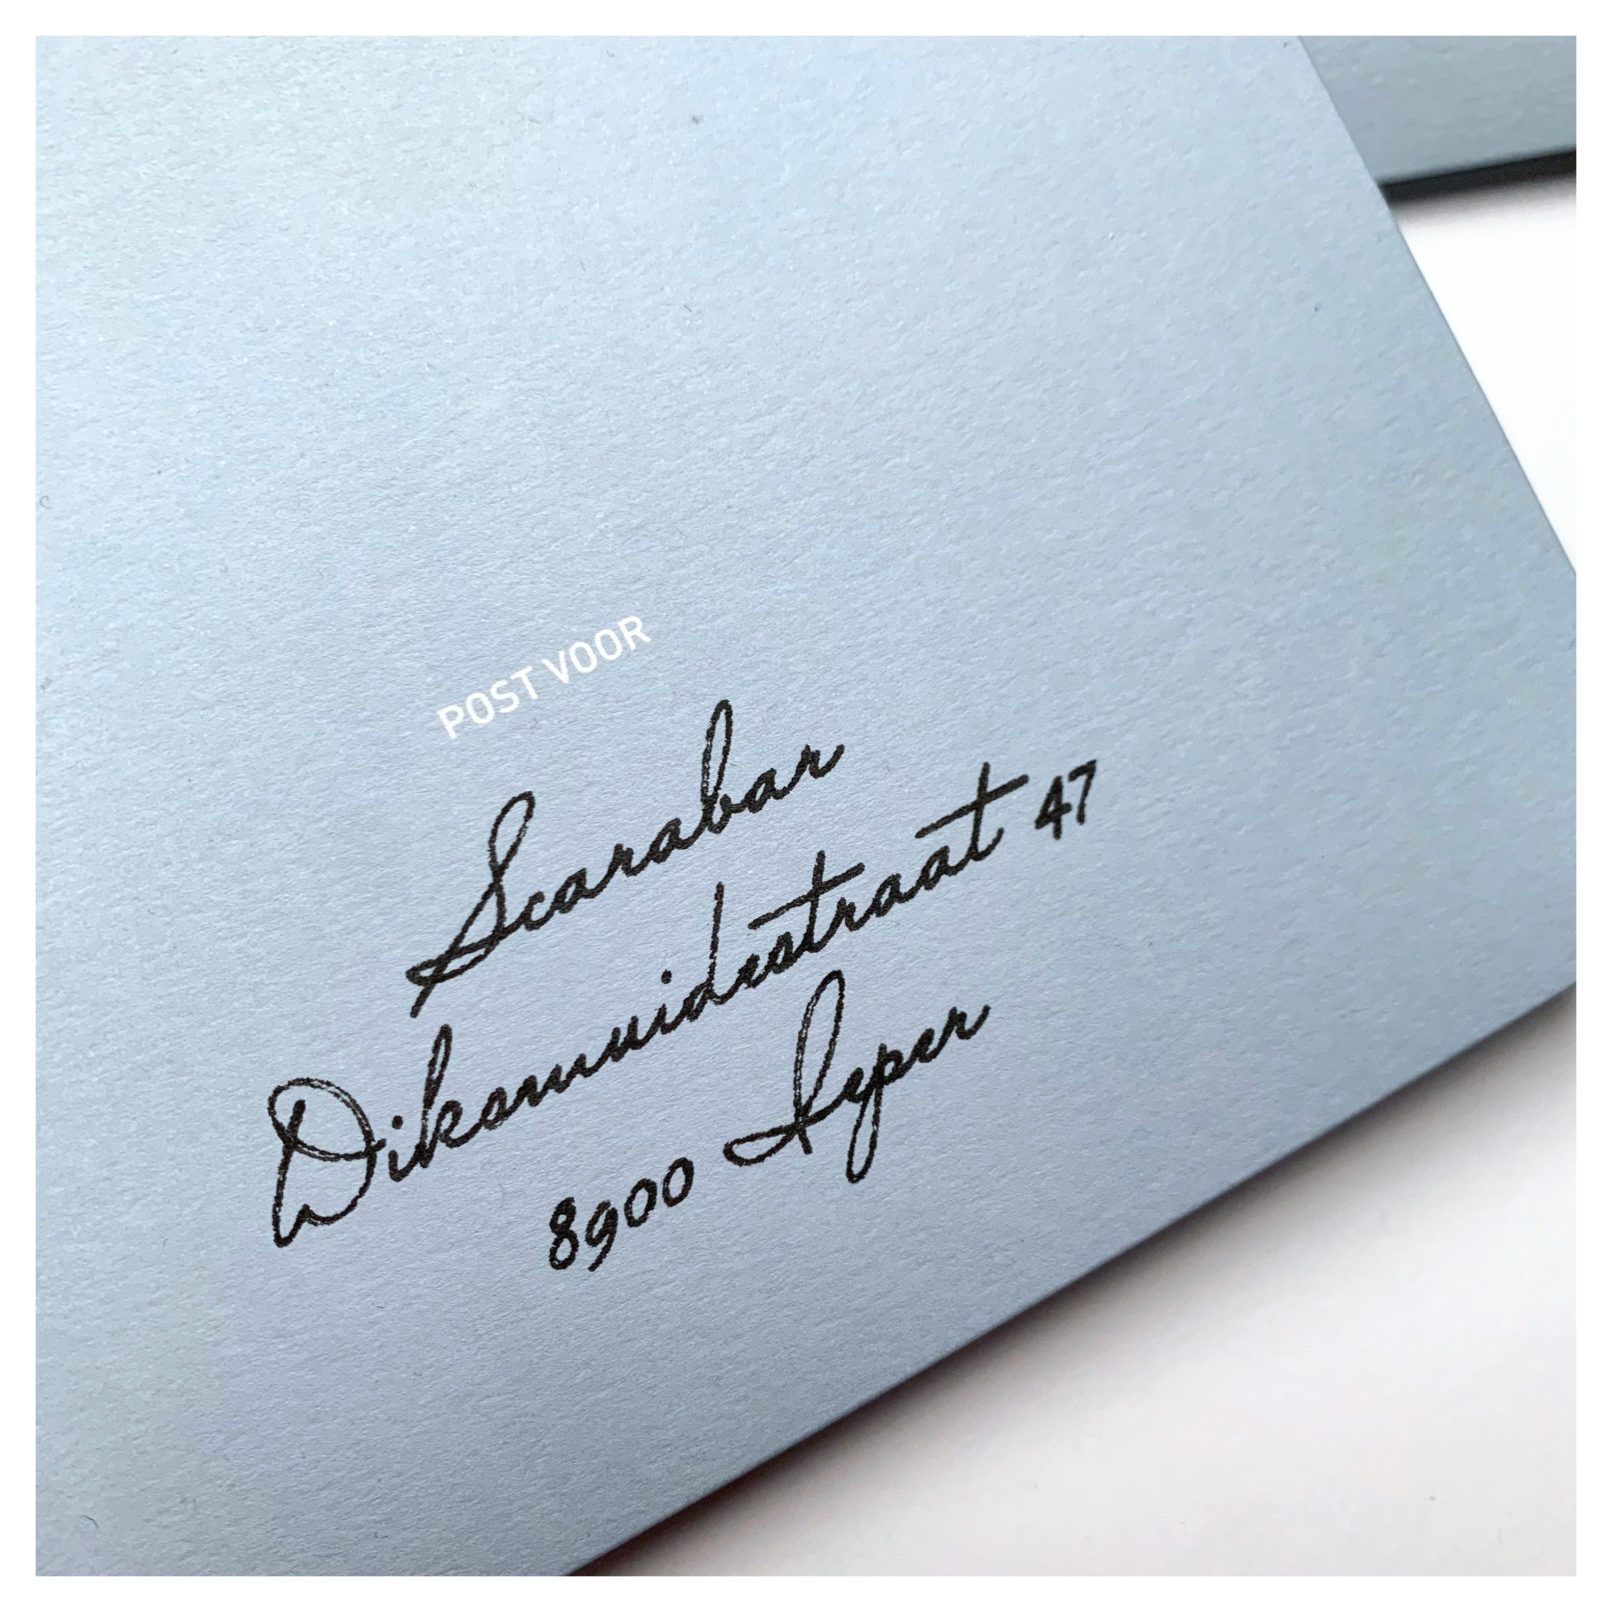 POST VOOR
Scarabar
Diksmuidestraat 47
8900 Ieper